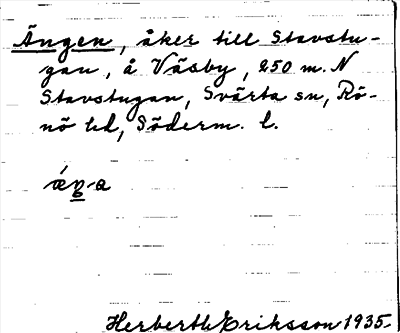 Ängen, åker till Stavstu-
gan, å Väsby, 250 m. N
Stavstugan, Svärta sn, Rö-
nö hd, Söderm. l.
Herberth Eriksson 1935.